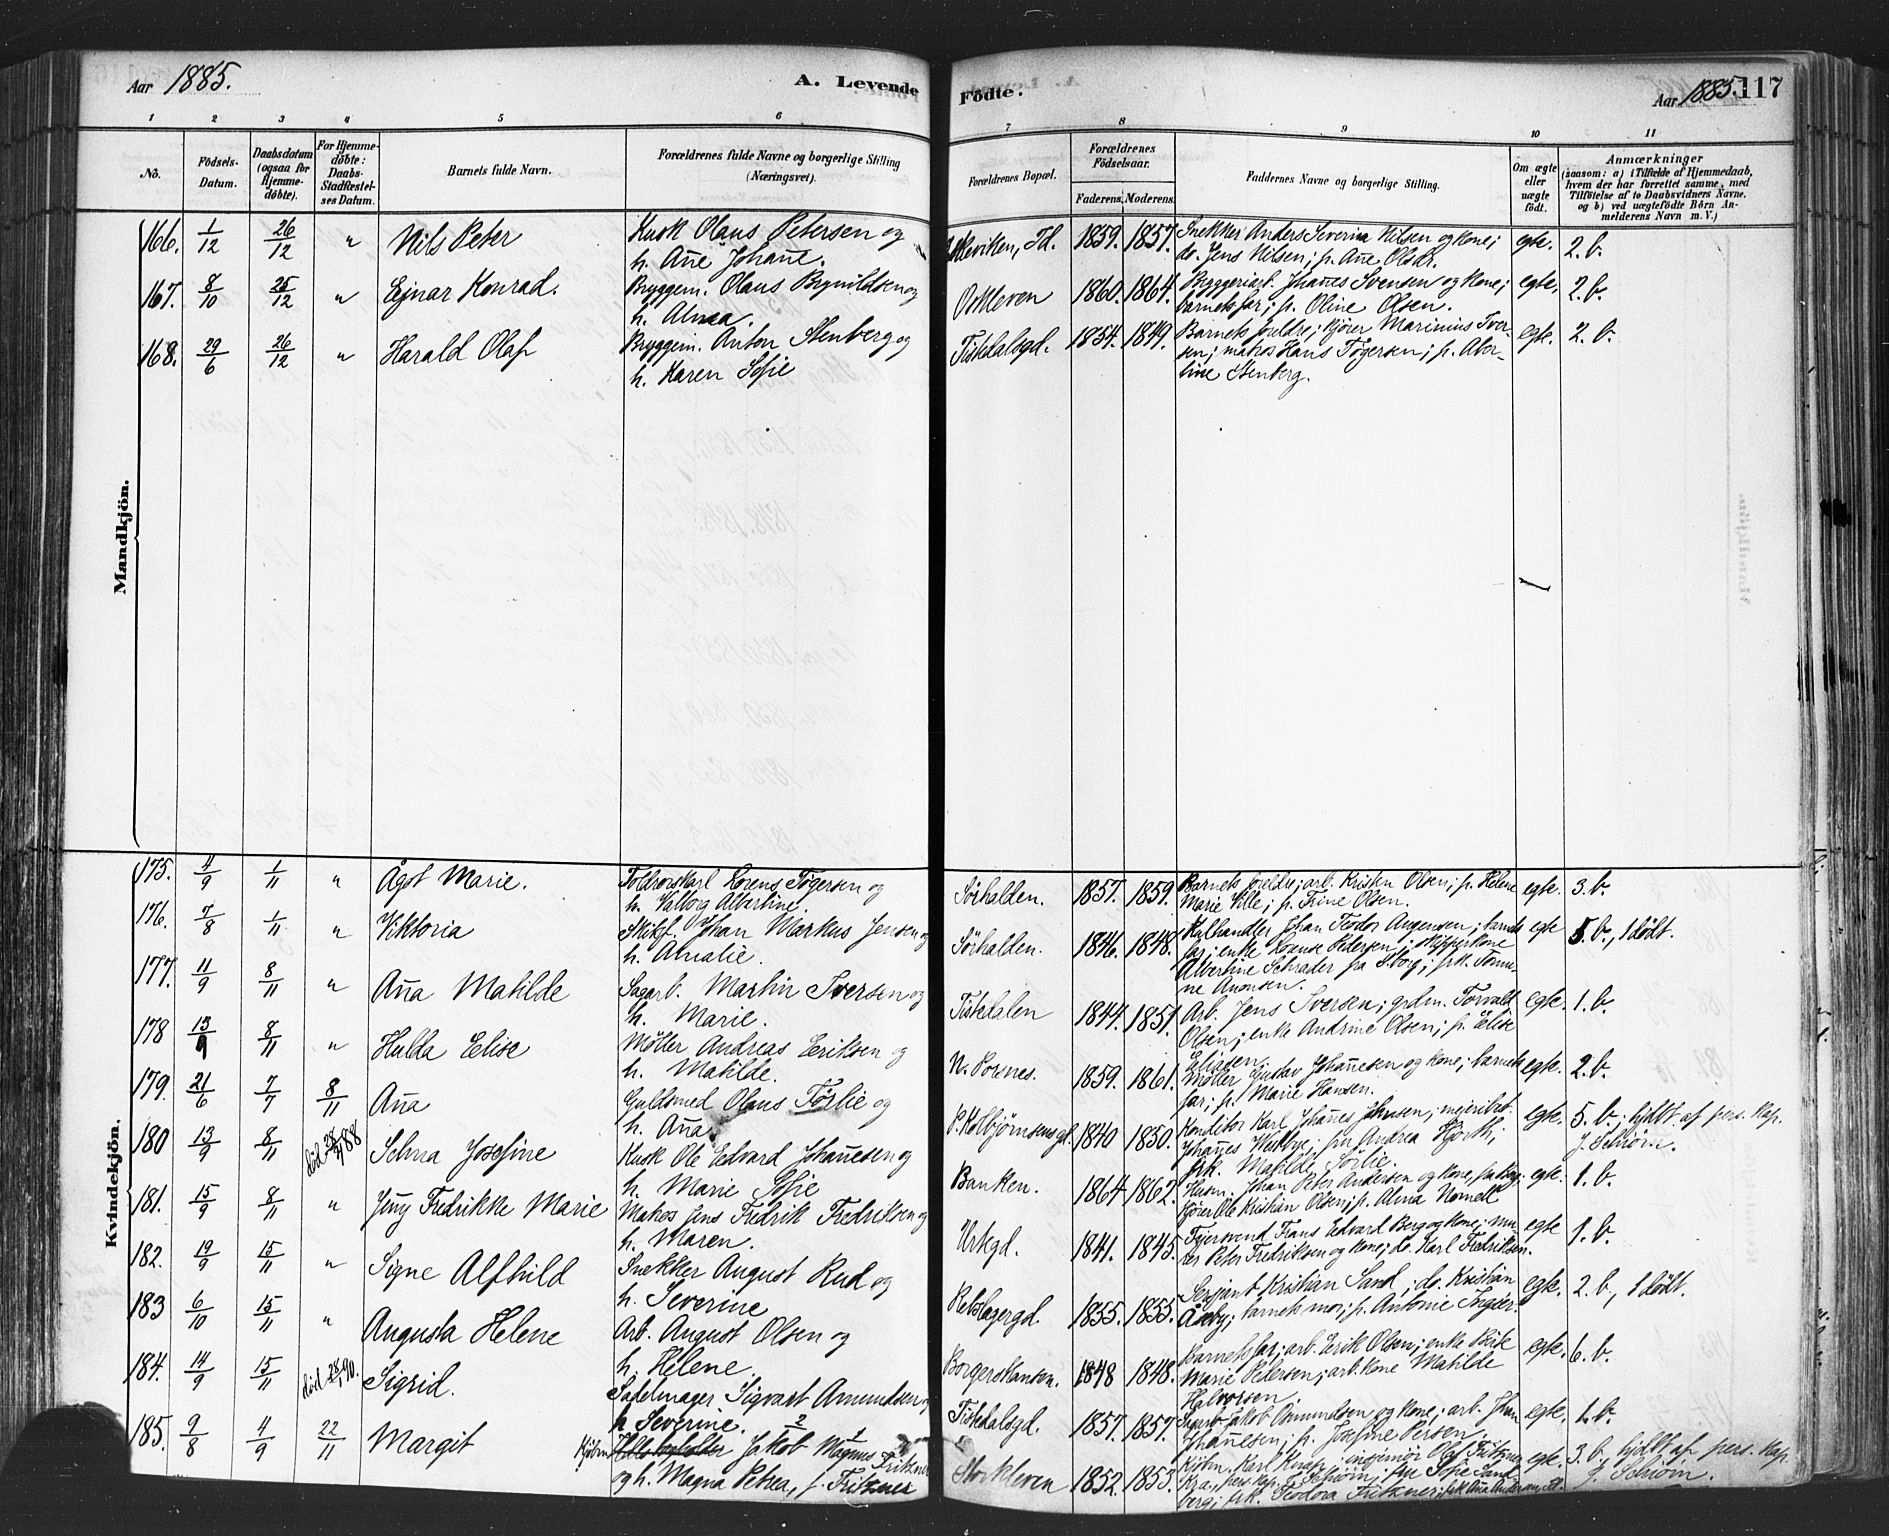 Aar 1885.
A. Levende
Födte.
Aar 1885. 117
1 2 3 4 5 6 7 8 9 10 11
No.
Födsels-Datum.
Daabsdatum (ogsaa for Hjemme-döbte).
For Hjemme-döbte: Daabs-Stadfæstel-ses Datum.
Barnets fulde Navn.
Forældrenes fulde Navne og borgerlige Stilling (Næringsvei).
Forældrenes Bopæl.
Forældrenes Födselsaar.
Faderens. Moderens.
Faddernes Navne og borgerlige Stilling.
Om ægte eller uægte födt.
Anmærkninger
(saasom: a) i Tilfælde af Hjemmedaab,
hvem der har forrettet samme, med
Tilföielse af to Daabsvidners Navne.
og b) ved uægtefödte Börn An-
melderens Navn m. V.)
Mandkjön.
166. 1/12 26/12 " Nils Peter
Kusk Olaus Petersen og
h. Ane Johane.
Id. 1859. 1857.
Snekker Anders Severin Nilsen og kone;
do. Jens Nilsen; p. Ane Olsdr.
egte. 2. b.
167. 8/10 25/12 " Ejnar Konrad.
Bryggem. Olaus Brynildsen og
h. Alma.
Oskleven 1860. 1864.
Bryggeriarb. Johanes Svensen og kone;
barnets far; p. Oline Olsen.
egte, 2. b.
168. 29/6 26/12 " Harald Olaf
Bryggem. Anton Stenberg og
h. Karen Sofie
Tistedalsgd. 1854. 1849.
Barnets foreldre; kjører Marinius Iver-
sen; matros Hans Tøgersen; p. Aber-
tine Stenberg.
egte. 2. b.
Kvindekjön.
175. 4/9 1/11 " Ågot Marie.
Toldrorskarl Lorens Tøgersen og
h. Valborg Albertine
Sørhalden. 1857. 1859.
Barnets foreldre; arb. Kristen Olsen; p. Helene
Marie Ville; p. Trine Olsen.
egte. 3. b.
176. 7/8 1/11 " Viktoria
Skibsf. Johan Markus Jensen og
h. Amalie.
Sørhalden. 1846. 1848.
Kulhandler Johan Teodor Augensen; barnets
far; enke Lovise Pedersen; skipperkone
Albertine Schrader fra S.borg; frk. Tomi-
ne Anonsen.
egte 5. b., 1 dødt.
177. 11/9 8/11 " Ana Matilde
Sagarb. Martin Iversen og
h. Marie.
Tistedalen 1844. 1851.
Arb. Jens Iversen; grdm. Torvald
Olsen; enke Andrine Olsen; p. Elise
Eliassen.
egte. 1. b.
178 13/9 8/11 " Hulda Elise
Møller Andreas Eriksen og
h. Matilde.
N. Porsnes. 1859. 1861.
Møller Gustav Johanesen og kone; barnets
far; p. Marie Hansen.
egte. 2. b.
179. 21/6 7/7 8/11 Ana
Guldsmed Olaus Tørlie og
h. Ana
P. Kolbjørnsensgd. 1840 1850.
Konditor Karl Johanes Johnsen; mejeribest.
Johanes Welbye; fru Andrea Hjorth;
frk. Matilde Sørlie.
egte. 5. b.; hjdbt af pers. kap.
J. Schiørn.
180 13/9 8/11 død 28/2 88 Selma Josefine
Kusk Ole Edvard Johanesen og
h. Marie Sofie
Banken. 1864 1862.
Husm. Johan Peter Andersen og kone,
kjører Ole Kristian Olsen; p. Alma Nomell
egte. 1. b.
181. 15/9 8/11 " Jeny Fredrikke Marie
Matros Jens Fredrik Fredriksen og
h. Maren.
Urtegd. 1841. 1845.
Fyrsvend Frans Edvard Berg og kone; mu-
rer Peter Fredriksen og kone; do. Karl Fredriksen.
egte 1. b.
182. 19/9 15/11 " Signe Alfhild
Snekker August Rud og
h. Severine
Rebslagergd. 1855. 1855.
Sersjant Kristian Sand; do. Kristian
Åseby; barnets mor; p. Antonie Ingier.
egte. 2. b., 1 dødt.
183 6/10 15/11 " Augusta Helene
Arb. August Olsen og
h. Helene.
Borgerskansen. 1848 1848.
Barnets far; arb. Erik Olsen; enke Berte
Marie Pedersen; arb.kone Matilde
Halvorsen
egte. 6. b.
184. 14/9 15/11 Sigrid.
Sadelmager Sigvart Amundsen og
h. Severine.
Tistedalsgd. 1857. 1857.
Sagarb. Jakob Amundsen og kone; arb. Johan
Johanesen; p. Josefine Persen.
egte. 1. b.
185. 9/8 4/9 22/11 Margit
Kjøbm. Jakob Magnus Fritzner
og h. Magna Petrea, f. Fritzner
Storkleven 1852. 1853.
Kjøbm. Karl Knap; ingeniør Olaf Fritzner
Kra., pers. kap. J. Schiørn; fru Sofie Sand-
berg; frk. Teodora Fritzner; frk Ana Andersen,
egte. 3. b. hjdbt af pers. kap.
J. Schiørn.